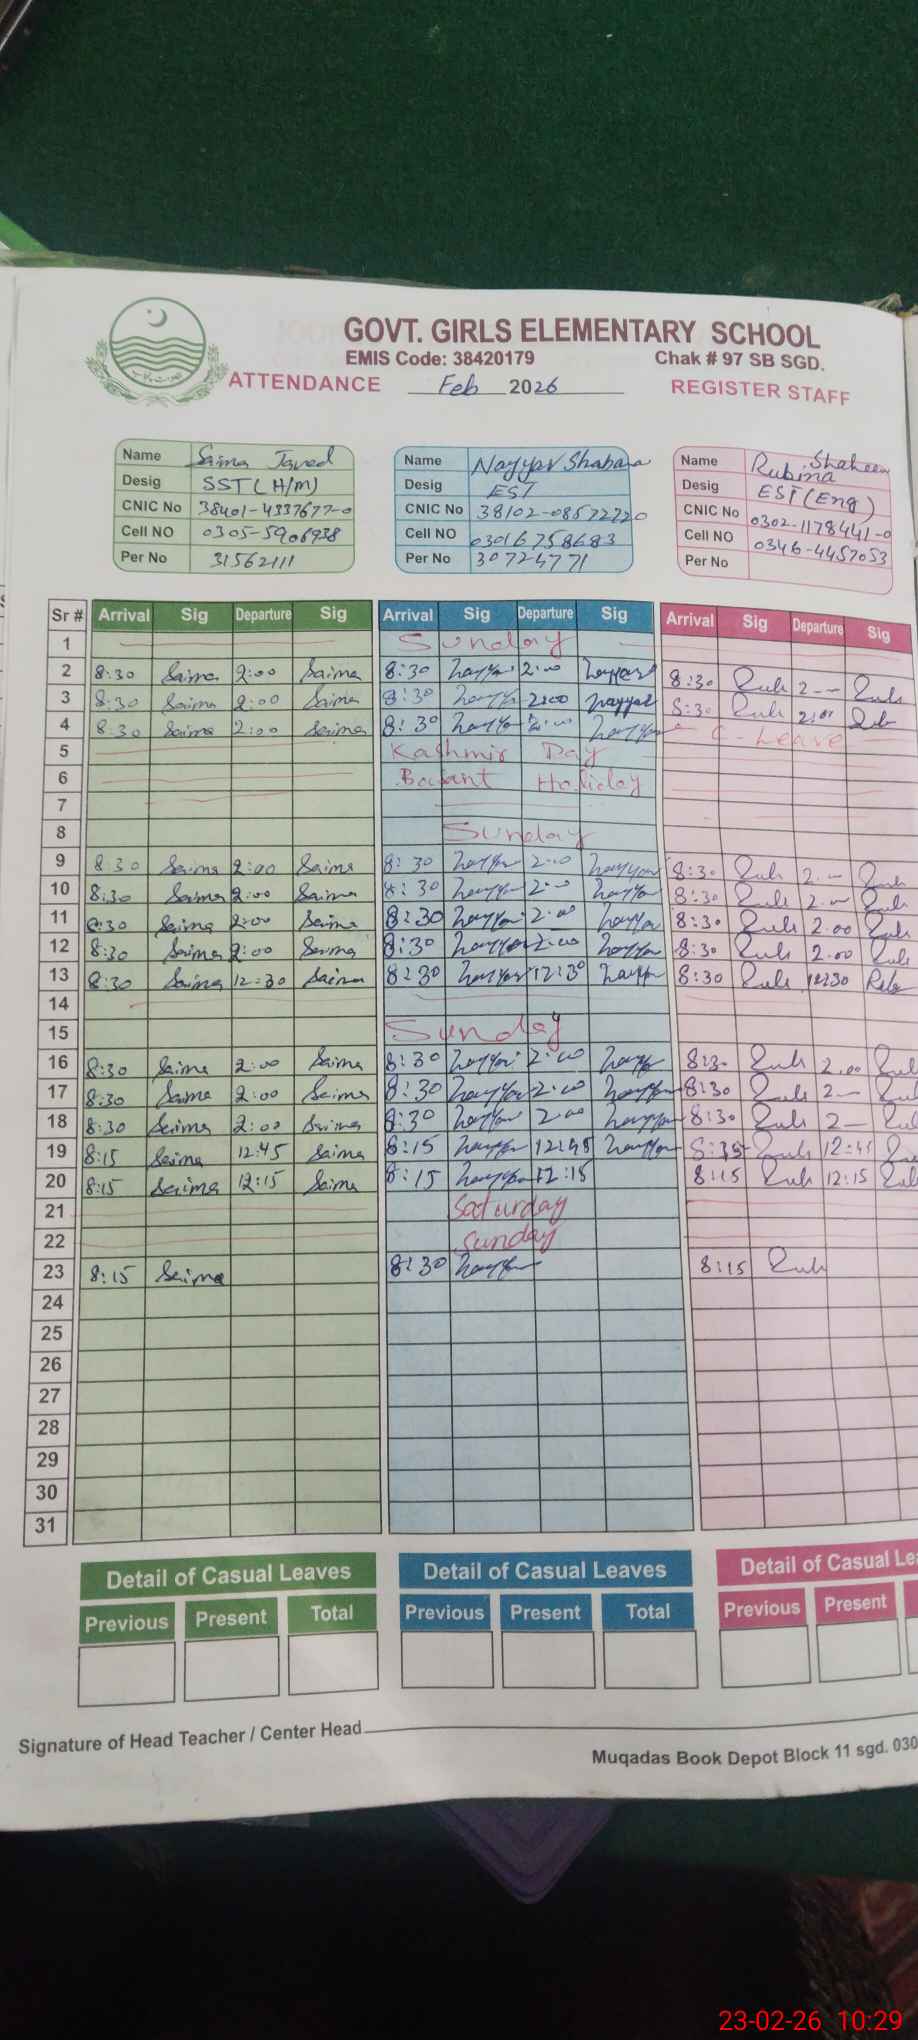 GOVT. GIRLS ELEMENTARY SCHOOL
EMIS Code: 38420179 Chak # 97 SB SGD.
ATTENDANCE Feb 2026 REGISTER STAFF
Name Saima Javed Name Nayyar Shabana Name Rubina Shaheen
Desig SST (H/M) Desig EST Desig EST (Eng)
CNIC No 38401-4337677-0 CNIC No 38102-08572220 CNIC No 0302-1178441-0
Cell NO 0305-5906938 Cell NO 03016758683 Cell NO 0346-4457053
Per No 31562111 Per No 30724771 Per No
Sr # Arrival Sig Departure Sig Arrival Sig Departure Sig Arrival Sig Departure Sig
1 Sunday
2 8:30 Saima 2:00 Saima 8:30 Nayyar 2:00 Nayyar 8:30 Rub 2 — Rub
3 8:30 Saima 2:00 Saima 8:30 Nayyar 2:00 Nayyar 8:30 Rub 2:00 Rub
4 8:30 Saima 2:00 Saima 8:30 Nayyar 2:00 Nayyar C-Leave
5 Kashmir Day
6 Basant Holiday
7
8 Sunday
9 8:30 Saima 2:00 Saima 8:30 Nayyar 2:00 Nayyar 8:30 Rub 2.— Rub
10 8:30 Saima 2:00 Saima 8:30 Nayyar 2:00 Nayyar 8:30 Rub 2.00 Rub
11 8:30 Saima 2:00 Saima 8:30 Nayyar 2:00 Nayyar 8:30 Rub 2.00 Rub
12 8:30 Saima 2:00 Saima 8:30 Nayyar 2:00 Nayyar 8:30 Rub 2.00 Rub
13 8:30 Saima 12:30 Saima 8:30 Nayyar 12:30 Nayyar 8:30 Rub 12:30 Rub
14
15 Sunday
16 8:30 Saima 2:00 Saima 8:30 Nayyar 2:00 Nayyar 8:30 Rub 2.00 Rub
17 8:30 Saima 2:00 Saima 8:30 Nayyar 2:00 Nayyar 8:30 Rub 2 — Rub
18 8:30 Saima 2:00 Saima 8:30 Nayyar 2:00 Nayyar 8:30 Rub 2 — Rub
19 8:15 Saima 12:45 Saima 8:15 Nayyar 12:45 Nayyar Rub 12:45
20 8:15 Saima 12:15 Saima 8:15 Nayyar 12:15 8:15 Rub 12:15 Rub
21 Saturday
22 Sunday
23 8:15 Saima 8:30 Nayyar 8:15 Rub
24
25
26
27
28
29
30
31
Detail of Casual Leaves Detail of Casual Leaves Detail of Casual Le
Previous Present Total Previous Present Total Previous Present
Signature of Head Teacher / Center Head
Muqadas Book Depot Block 11 sgd. 030
23-02-26 10:29